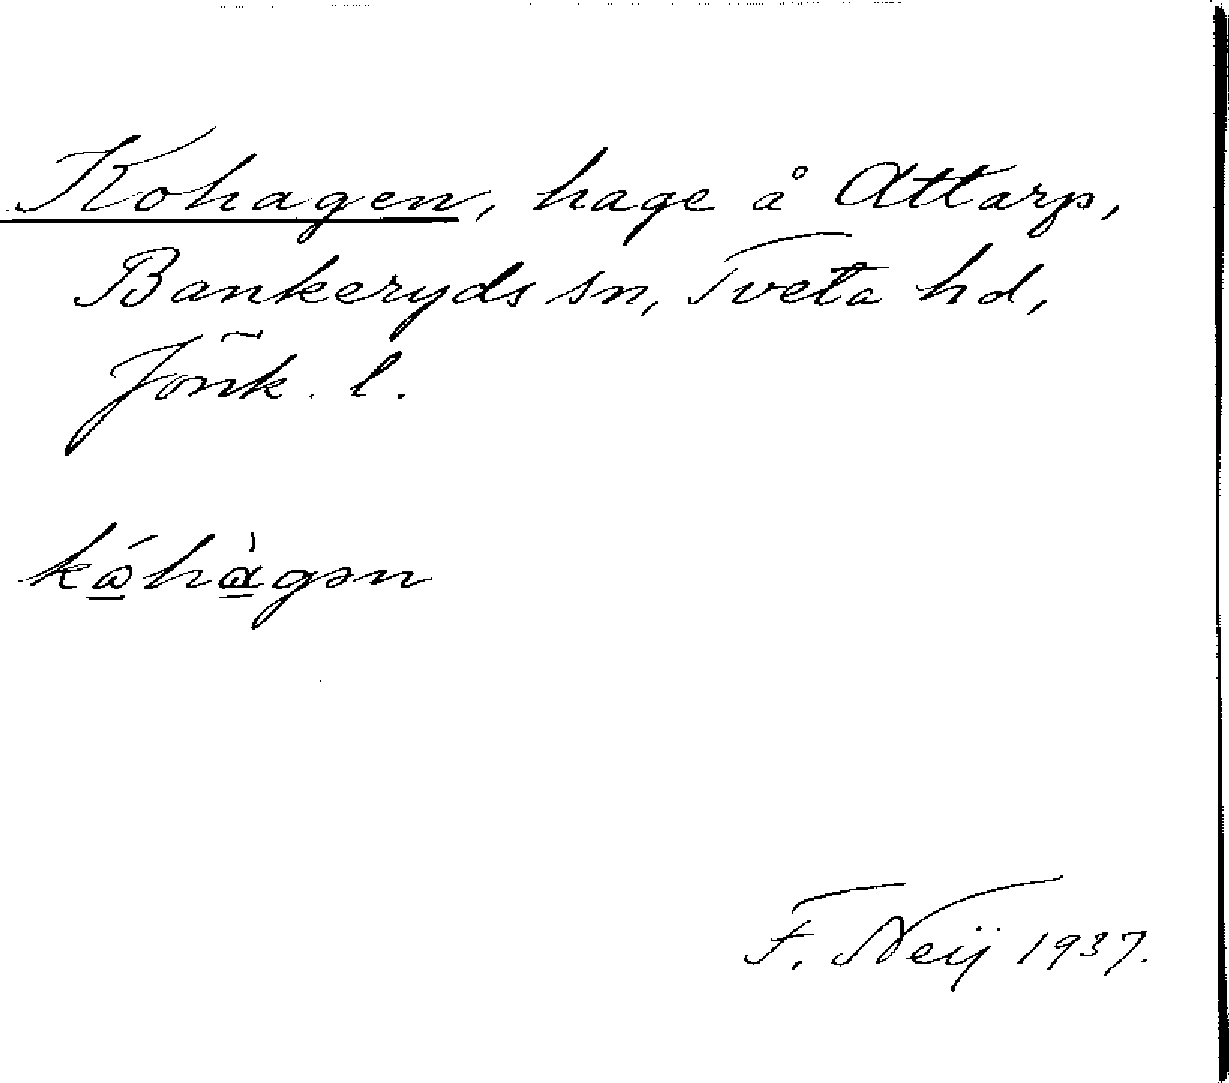 Kohagen, hage å Attarp,
Bankeryds sn, Tveta hd,
Jönk. l.
kóhàgən
F. Neij 1937.